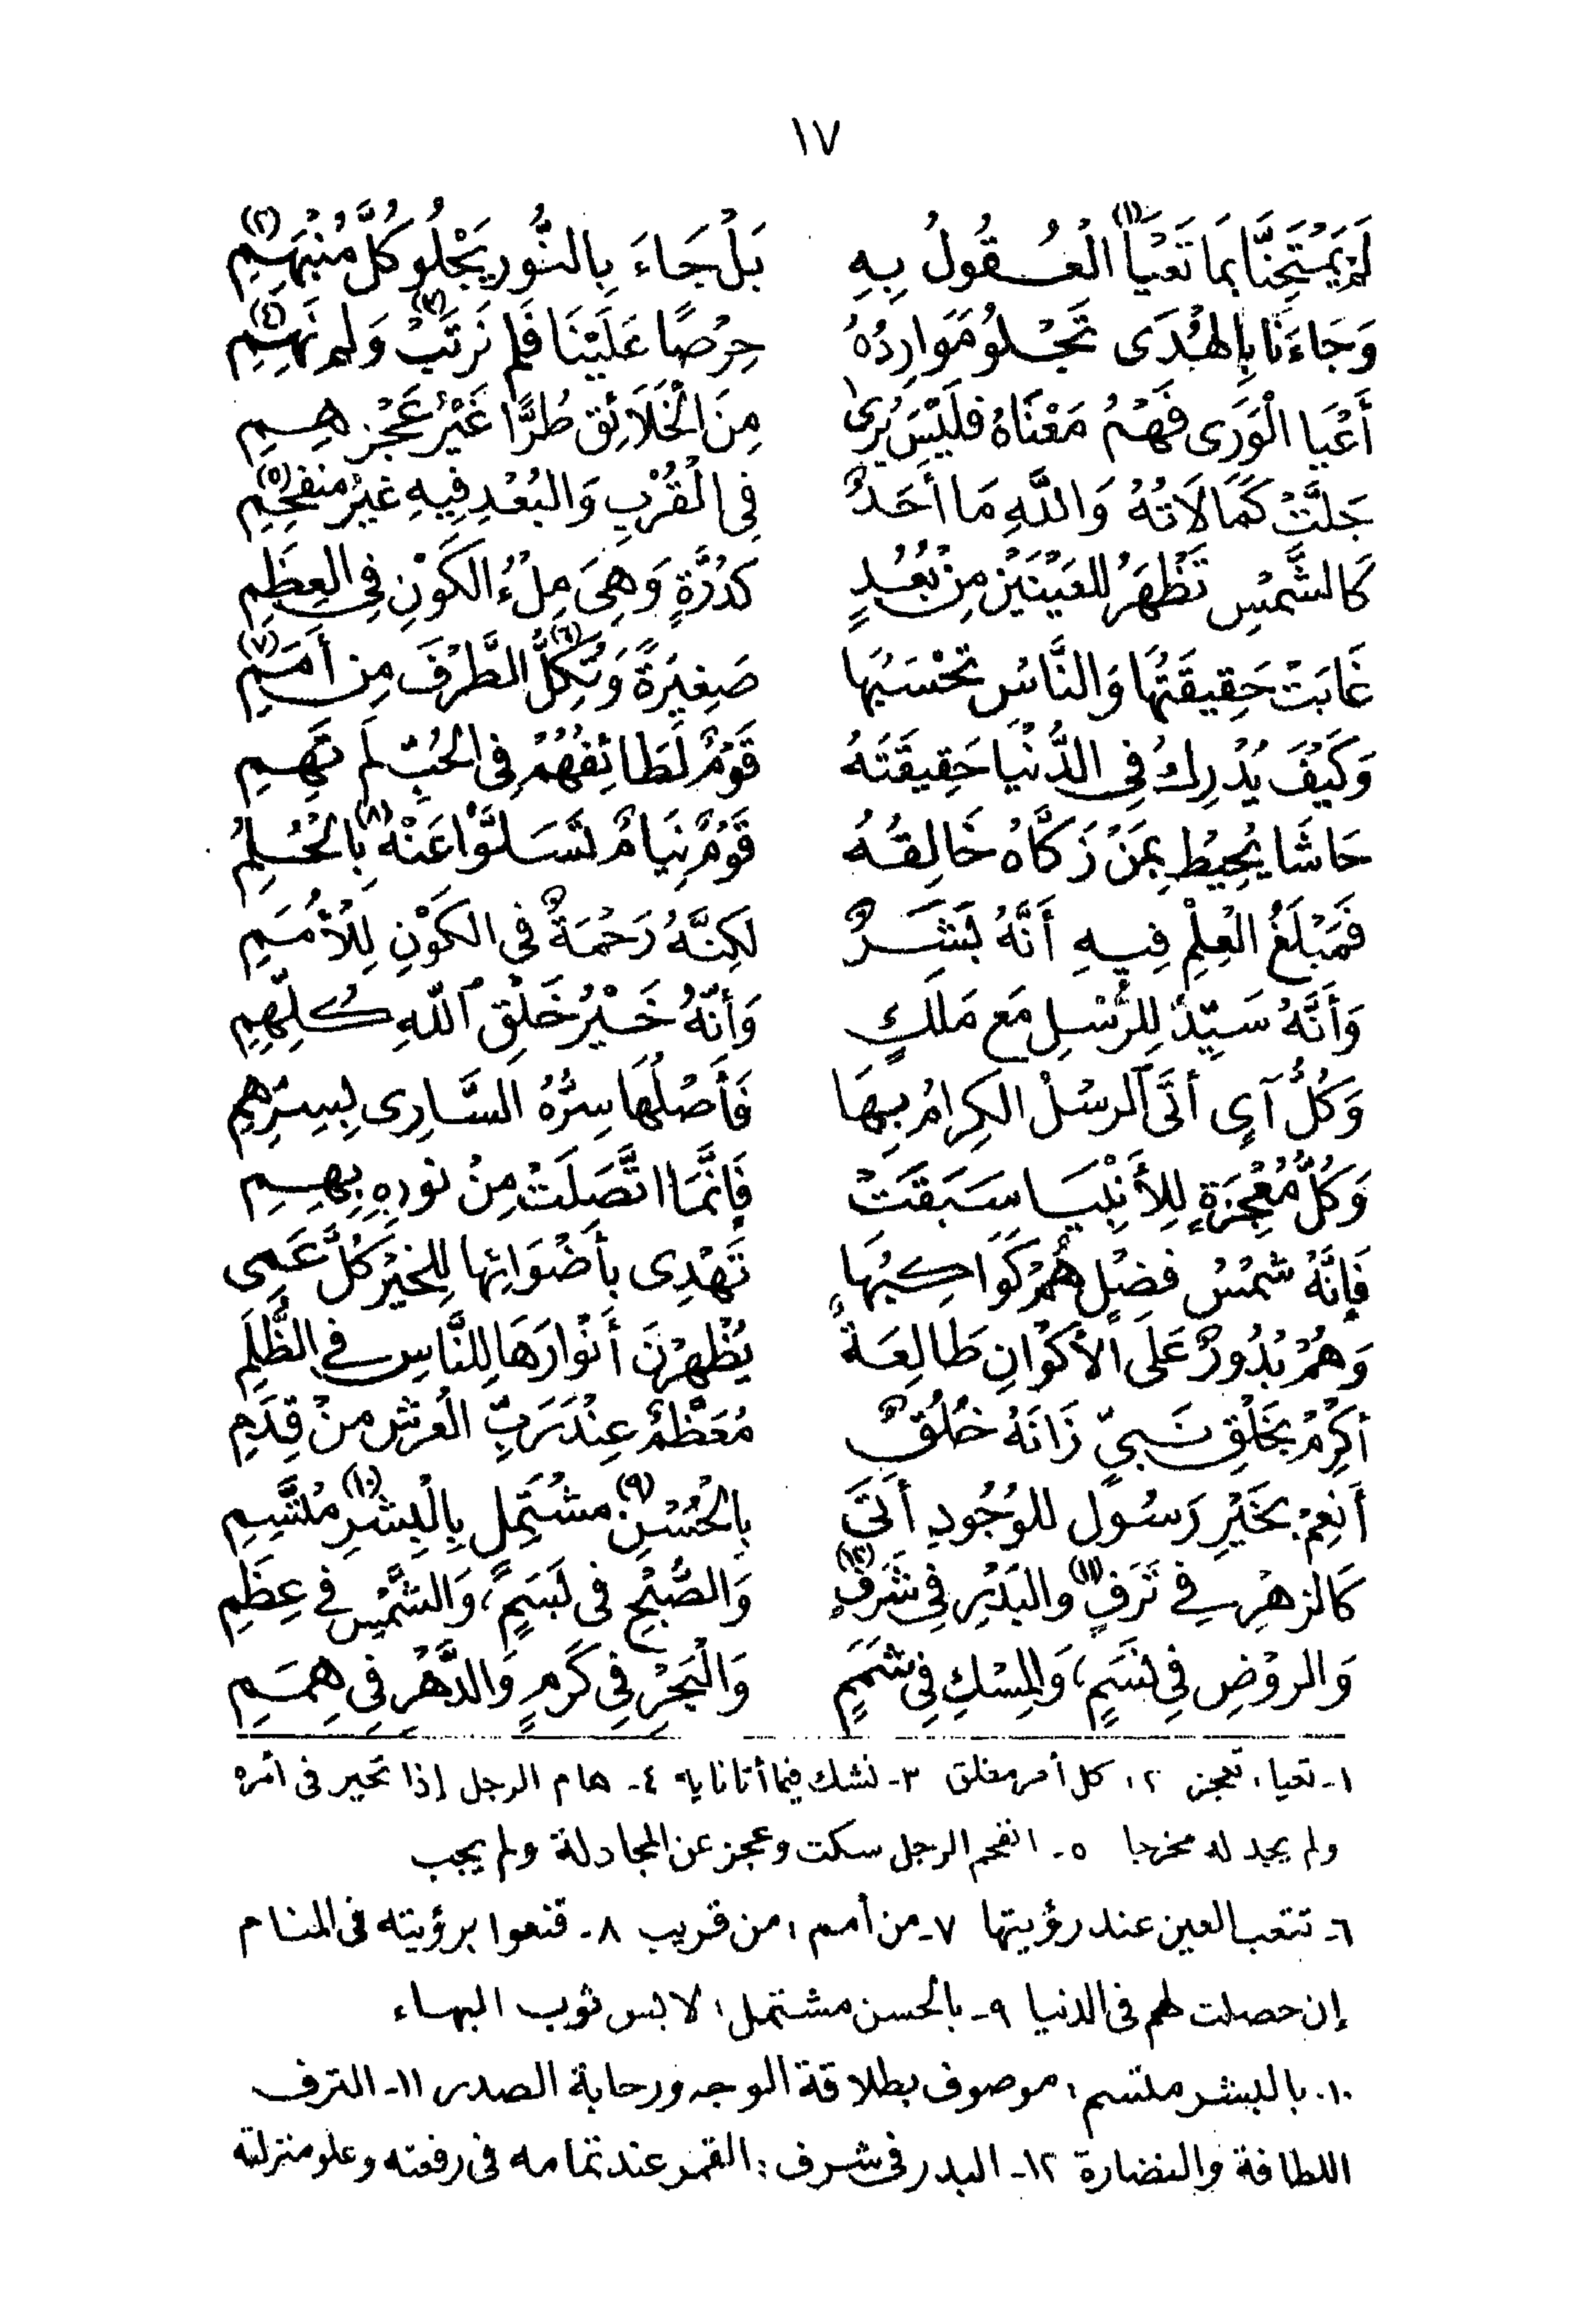 ١٧
لَمْ يَمْتَحِنَّا بِمَا تَعْيَا(١) الْعُقُولُ بِهِ بَلْ جَاءَ بِالنُّورِ يَجْلُو كُلَّ مُنْبَهِمِ(٢)
وَجَاءَنَا بِالهُدَى تَجْلُو مَوَارِدُهُ حِرْصًا عَلَيْنَا فَلَم نَرْتَبْ(٣) وَلَم نَهِمِ(٤)
أَعْيَا الْوَرَى فَهْمُ مَعْنَاهُ فَلَيْسَ يُرىٰ مِنَ الْخَلَائِقِ طُرًّا غَيْرُ عَجْزِهِمِ
جَلَّتْ كَمَالَاتُهُ وَاللَّهِ مَا أَحَدٌ فِى الْقُرْبِ وَالبُعْدِ فِيهِ غَيْرُ مُنْفَحِمِ(٥)
كَالشَّمْسِ تَظْهَرُ لِلعَيْنَيْنِ مِنْ بُعُدٍ كَدُرَّةٍ وَهِىَ مِلْءُ الكَوْنِ فِى العِظَمِ
غَابَتْ حَقِيقَتُهَا وَالنَّاسُ تَحْسَبُهَا صَغِيرَةً وَتُكِلُّ(٦) الطَّرْفَ مِن أَمَمِ(٧)
وَكَيْفَ يُدْرِكُ فِى الدُّنْيَا حَقِيقَتَهُ قَوْمٌ لَطَائِفُهُمْ فِى الحُبِّ لَم تَهِمِ
حَاشَا يُحِيطُ بِمَنْ زَكَّاهُ خَالِقُهُ قَوْمٌ نِيَامٌ تَسَلَّوْا عَنْهُ(٨) بِالحُلُمِ
فَمَبْلَغُ الْعِلْمِ فِيهِ أَنَّهُ بَشَرٌ لَكِنَّهُ رَحْمَةٌ فِى الكَوْنِ لِلْأُمَمِ
وَأَنَّهُ سَيِّدٌ لِلرُّسْلِ مَع مَلَكٍ وَأَنَّهُ خَيْرُ خَلْقِ اللّهِ كُلِّهِمِ
وَكُلُّ آىٍ أَتَى الرسْلُ الكِرَامُ بِهَا فَأَصْلُهَا سِرُّهُ السَّارِى بِسِرِّهِمِ
وَكُلُّ مُعْجِزَةٍ لِلأَنْبِيَا سَبَقَتْ فَإِنَّمَا اتَّصَلَتْ مِنْ نُورِهِ بِهِمِ
فَإِنَّهُ شَمْسُ فَضْلٍ هُمْ كَوَاكِبُهَا تَهْدِى بِأَضْوَائِهَا لِلخَيْرِ كُلَّ عَمِى
وَهُمْ بُدُورٌ عَلَى الأَكْوَانِ طَالِعَةٌ يُظْهِرْنَ أَنْوَارَهَا لِلنَّاسِ فِي الظُّلَمِ
أَكْرِمْ بِخَلْقِ نَبِىٍّ زَانَهُ خُلُقٌ مُعَظَّمٌ عِنْدَ رَبِّ الْعَرْشِ مِنْ قِدَمِ
أَنْعِمْ بِخَيْرِ رَسُولٍ لِلوُجُودِ أَتَى بِالحُسْنِ(٩) مُشْتَمِلٍ بِالْبِشْرِ(١٠) مُتَّسِمِ
كَالزهْرِ فِي تَرَفٍ(١١) والبَدْرِ فِى شَرَفٍ(١٢) وَالصُّبْحِ فى بَسَمٍ، وَالشَّمْسِ فِي عِظَمِ
وَالروْضِ فِى نَسَمٍ، وَالمِسْكِ فِى شَمَمٍ وَالْبَحْرِ فِى كَرَمٍ وَالدَّهْرِ فِى هِمَمِ
١- تعيا: تعجز ٢: كل أمر مغلق ٣- نشك فيما أتانا به ٤- هام الرجل إذا تحير فى أمره
ولم يجد له مخرجا ٥- انفحم الرجل سكت وعجز عن المجادلة ولم يجب
٦- تتعب العين عند رؤيتها ٧- من أمم: من قريب ٨- قنعوا برؤيته فى المنام
إن حصلت لهم فى الدنيا ٩- بالحسن مشتمل: لابس ثوب البهاء
١٠- بالبشر متسم: موصوف بطلاقة الوجه ورحابة الصدر ١١- الترف
اللطافة والنضارة ١٢- البدر فى شرف: القمر عند تمامه فى رفعته وعلو منزلته